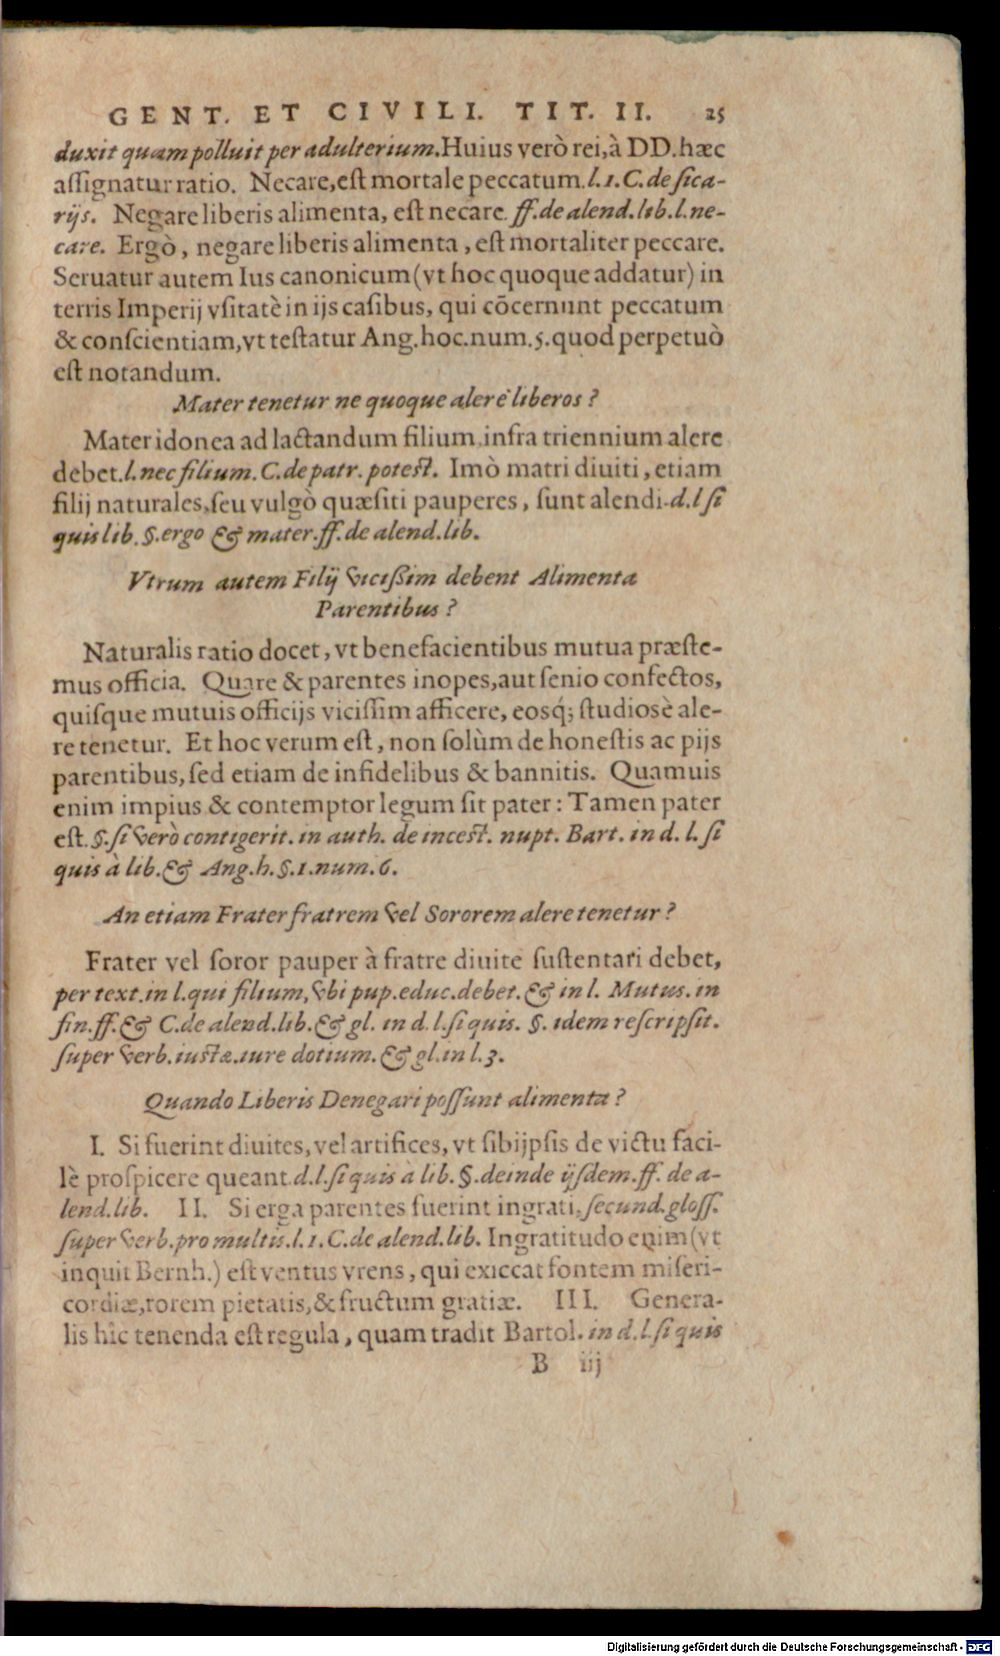 GENT. ET CIVILI. TIT. II. 25
duxit quam polluit per adulterium. Huius verò rei, à DD. hæc
aſſignatur ratio. Necare, eſt mortale peccatum. l. 1. C. de ſica-
rijs. Negare liberis alimenta, eſt necare ff. de alend. lib. l. ne-
care. Ergò, negare liberis alimenta, eſt mortaliter peccare.
Seruatur autem Ius canonicum (vt hoc quoque addatur) in
terris Imperij vſitatè in ijs caſibus, qui cōcernunt peccatum
& conſcientiam, vt teſtatur Ang. hoc. num. 5. quod perpetuò
eſt notandum.
Mater tenetur ne quoque alere liberos?
Mater idonea ad lactandum filium infra triennium alere
debet. l. nec filium. C. de patr. poteſt. Imò matri diuiti, etiam
filij naturales, ſeu vulgò quæſiti pauperes, ſunt alendi. d. l ſi
quis lib. §. ergo & mater. ff. de alend. lib.
Vtrum autem Filij viciſſim debent Alimenta
Parentibus?
Naturalis ratio docet, vt benefacientibus mutua præſte-
mus officia. Quare & parentes inopes, aut ſenio confectos,
quiſque mutuis officijs viciſſim afficere, eosq́; ſtudiosè ale-
re tenetur. Et hoc verum eſt, non ſolùm de honeſtis ac pijs
parentibus, ſed etiam de infidelibus & bannitis. Quamuis
enim impius & contemptor legum ſit pater: Tamen pater
eſt. §. ſi verò contigerit. in auth. de inceſt. nupt. Bart. in d. l. ſi
quis à lib. & Ang. h. §. 1. num. 6.
An etiam Frater fratrem vel Sororem alere tenetur?
Frater vel ſoror pauper à fratre diuite ſuſtentari debet,
per text. in l. qui filium, vbi pup. educ. debet. & in l. Mutus. in
fin. ff. & C. de alend. lib. & gl. in d. l. ſi quis. §. idem reſcripſit.
ſuper verb. iuſtæ. iure dotium. & gl. in l. 3.
Quando Liberis Denegari poſſunt alimenta?
I. Si fuerint diuites, vel artifices, vt ſibijpſis de victu faci-
lè proſpicere queant. d. l. ſi quis à lib. §. deinde ijſdem. ff. de a-
lend. lib. II. Si erga parentes fuerint ingrati, ſecund. gloſſ.
ſuper verb. pro multis. l. 1. C. de alend. lib. Ingratitudo enim (vt
inquit Bernh.) eſt ventus vrens, qui exiccat fontem miſeri-
cordiæ, rorem pietatis, & fructum gratiæ. III. Genera-
lis hîc tenenda eſt regula, quam tradit Bartol. in d. l. ſi quis
B iij
Digitalisierung gefördert durch die Deutsche Forschungsgemeinschaft - DFG